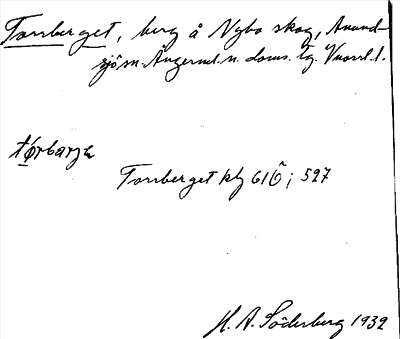 Torrberget, berg å Nybo skog, Anund-
sjö sn. Ångerml. n. doms. tg. Vnorrl. l.
tǿrbarjə
Torrberget kbg 61Ö; 527
H. A. Söderberg 1932